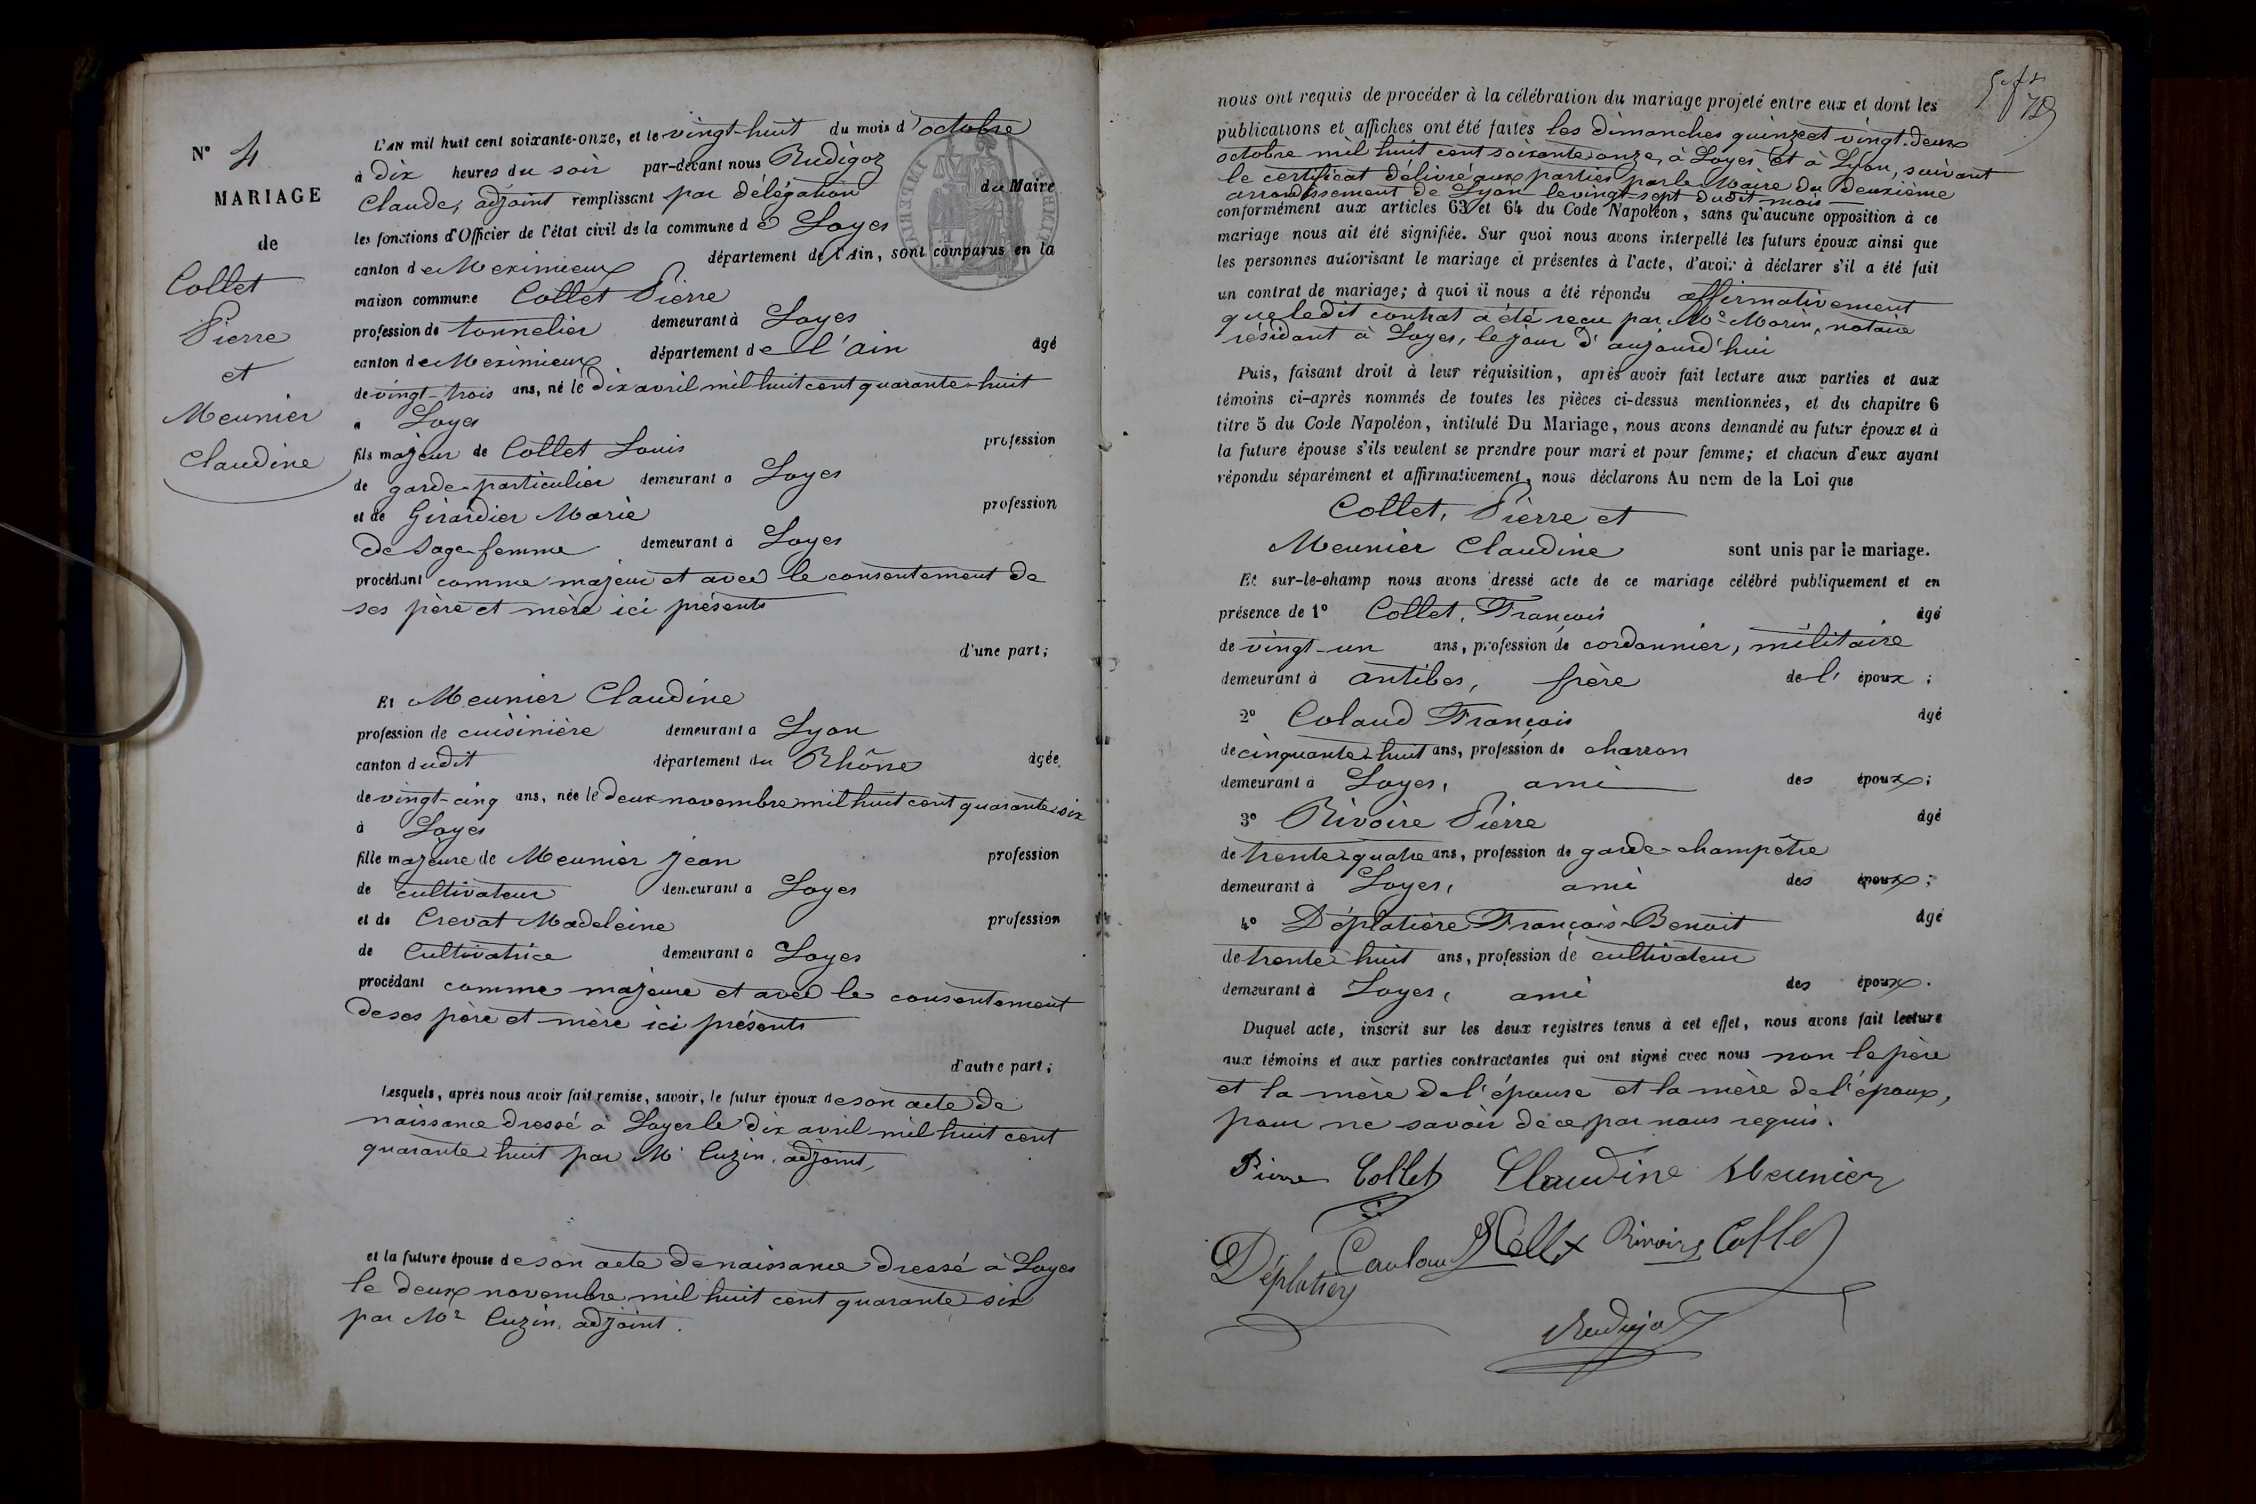 N° 4
MARIAGE
de
Collet
Pierre
et
Meunier
Claudine
L'AN mil huit cent soixante-onze, et le vingt-huit du mois d'octobre
à dix heures du soir par-devant nous Rudigoz
Claude, adjoint remplissant par délégation du Maire
les fonctions d'Officier de l'état civil de la commune de Loyes
canton de Meximieux département de l'Ain, sont comparus en la
maison commune Collet Pierre
profession de tonnelier demeurant à Loyes
canton de Meximieux département de l'ain âgé
de vingt-trois ans, né le dix avril mil huit cent quarante-huit
à Loyes
fils majeur de Collet Louis profession
de garde-particulier demeurant à Loyes
et de Girardier Marie profession
de sage-femme demeurant à Loyes
procédant comme majeur et avec le consentement de
ses père et mère ici présents
d'une part;
Et Meunier Claudine
profession de cuisinière demeurant à Lyon
canton dudit département du Rhône âgée
de vingt-cinq ans, née le deux novembre mil huit cent quarante-six
à Loyes
fille majeure de Meunier Jean profession
de cultivateur demeurant à Loyes
et de Crevat Madeleine profession
de Cultivatrice demeurant à Loyes
procédant comme majeure et avec le consentement
de ses père et mère ici présents
d'autre part;
Lesquels, après nous avoir fait remise, savoir, le futur époux de son acte de
naissance dressé à Loyes le dix avril mil huit cent
quarante-huit par Mr Cuzin, adjoint,
et la future épouse de son acte de naissance dressé à Loyes
le deux novembre mil huit cent quarante-six
par Mr Cuzin, adjoint.
nous ont requis de procéder à la célébration du mariage projeté entre eux et dont les
publications et affiches ont été faites les dimanches quinze et vingt-deux
octobre mil huit cent soixante onze, à Loyes et à Lyon, suivant
le certificat délivré aux parties par le Maire du deuxième
arrondissement de Lyon le vingt-sept dudit mois
conformément aux articles 63 et 64 du Code Napoléon, sans qu'aucune opposition à ce
mariage nous ait été signifiée. Sur quoi nous avons interpellé les futurs époux ainsi que
les personnes autorisant le mariage et présentes à l'acte, d'avoir à déclarer s'il a été fait
un contrat de mariage; à quoi il nous a été répondu affirmativement
que ledit contrat a été reçu par Me Morin, notaire
résidant à Loyes, le jour d'aujourd'hui
Puis, faisant droit à leur réquisition, après avoir fait lecture aux parties et aux
témoins ci-après nommés de toutes les pièces ci-dessus mentionnées, et du chapitre 6
titre 5 du Code Napoléon, intitulé Du Mariage, nous avons demandé au futur époux et à
la future épouse s'ils veulent se prendre pour mari et pour femme; et chacun d'eux ayant
répondu séparément et affirmativement, nous déclarons Au nom de la Loi que
Collet, Pierre et
Meunier Claudine sont unis par le mariage.
Et sur-le-champ nous avons dressé acte de ce mariage célébré publiquement et en
présence de 1° Collet, François âgé
de vingt-un ans, profession de cordonnier, militaire
demeurant à antibes, frère de l'époux;
2° Colaud François âgé
de cinquante-huit ans, profession de charron
demeurant à Loyes, ami des époux;
3° Rivoire Pierre âgé
de trente-quatre ans, profession de garde-champêtre
demeurant à Loyes, ami des époux;
4° Déplatière François-Benoit âgé
de trente-huit ans, profession de cultivateur
demeurant à Loyes, ami des époux.
Duquel acte, inscrit sur les deux registres tenus à cet effet, nous avons fait lecture
aux témoins et aux parties contractantes qui ont signé avec nous non le père
et la mère de l'épouse et la mère de l'époux,
pour ne savoir de ce par nous requis.
Pierre Collet Claudine Meunier
Caulaud Collet Rivoire Collet
Déplatière
Rudigoz